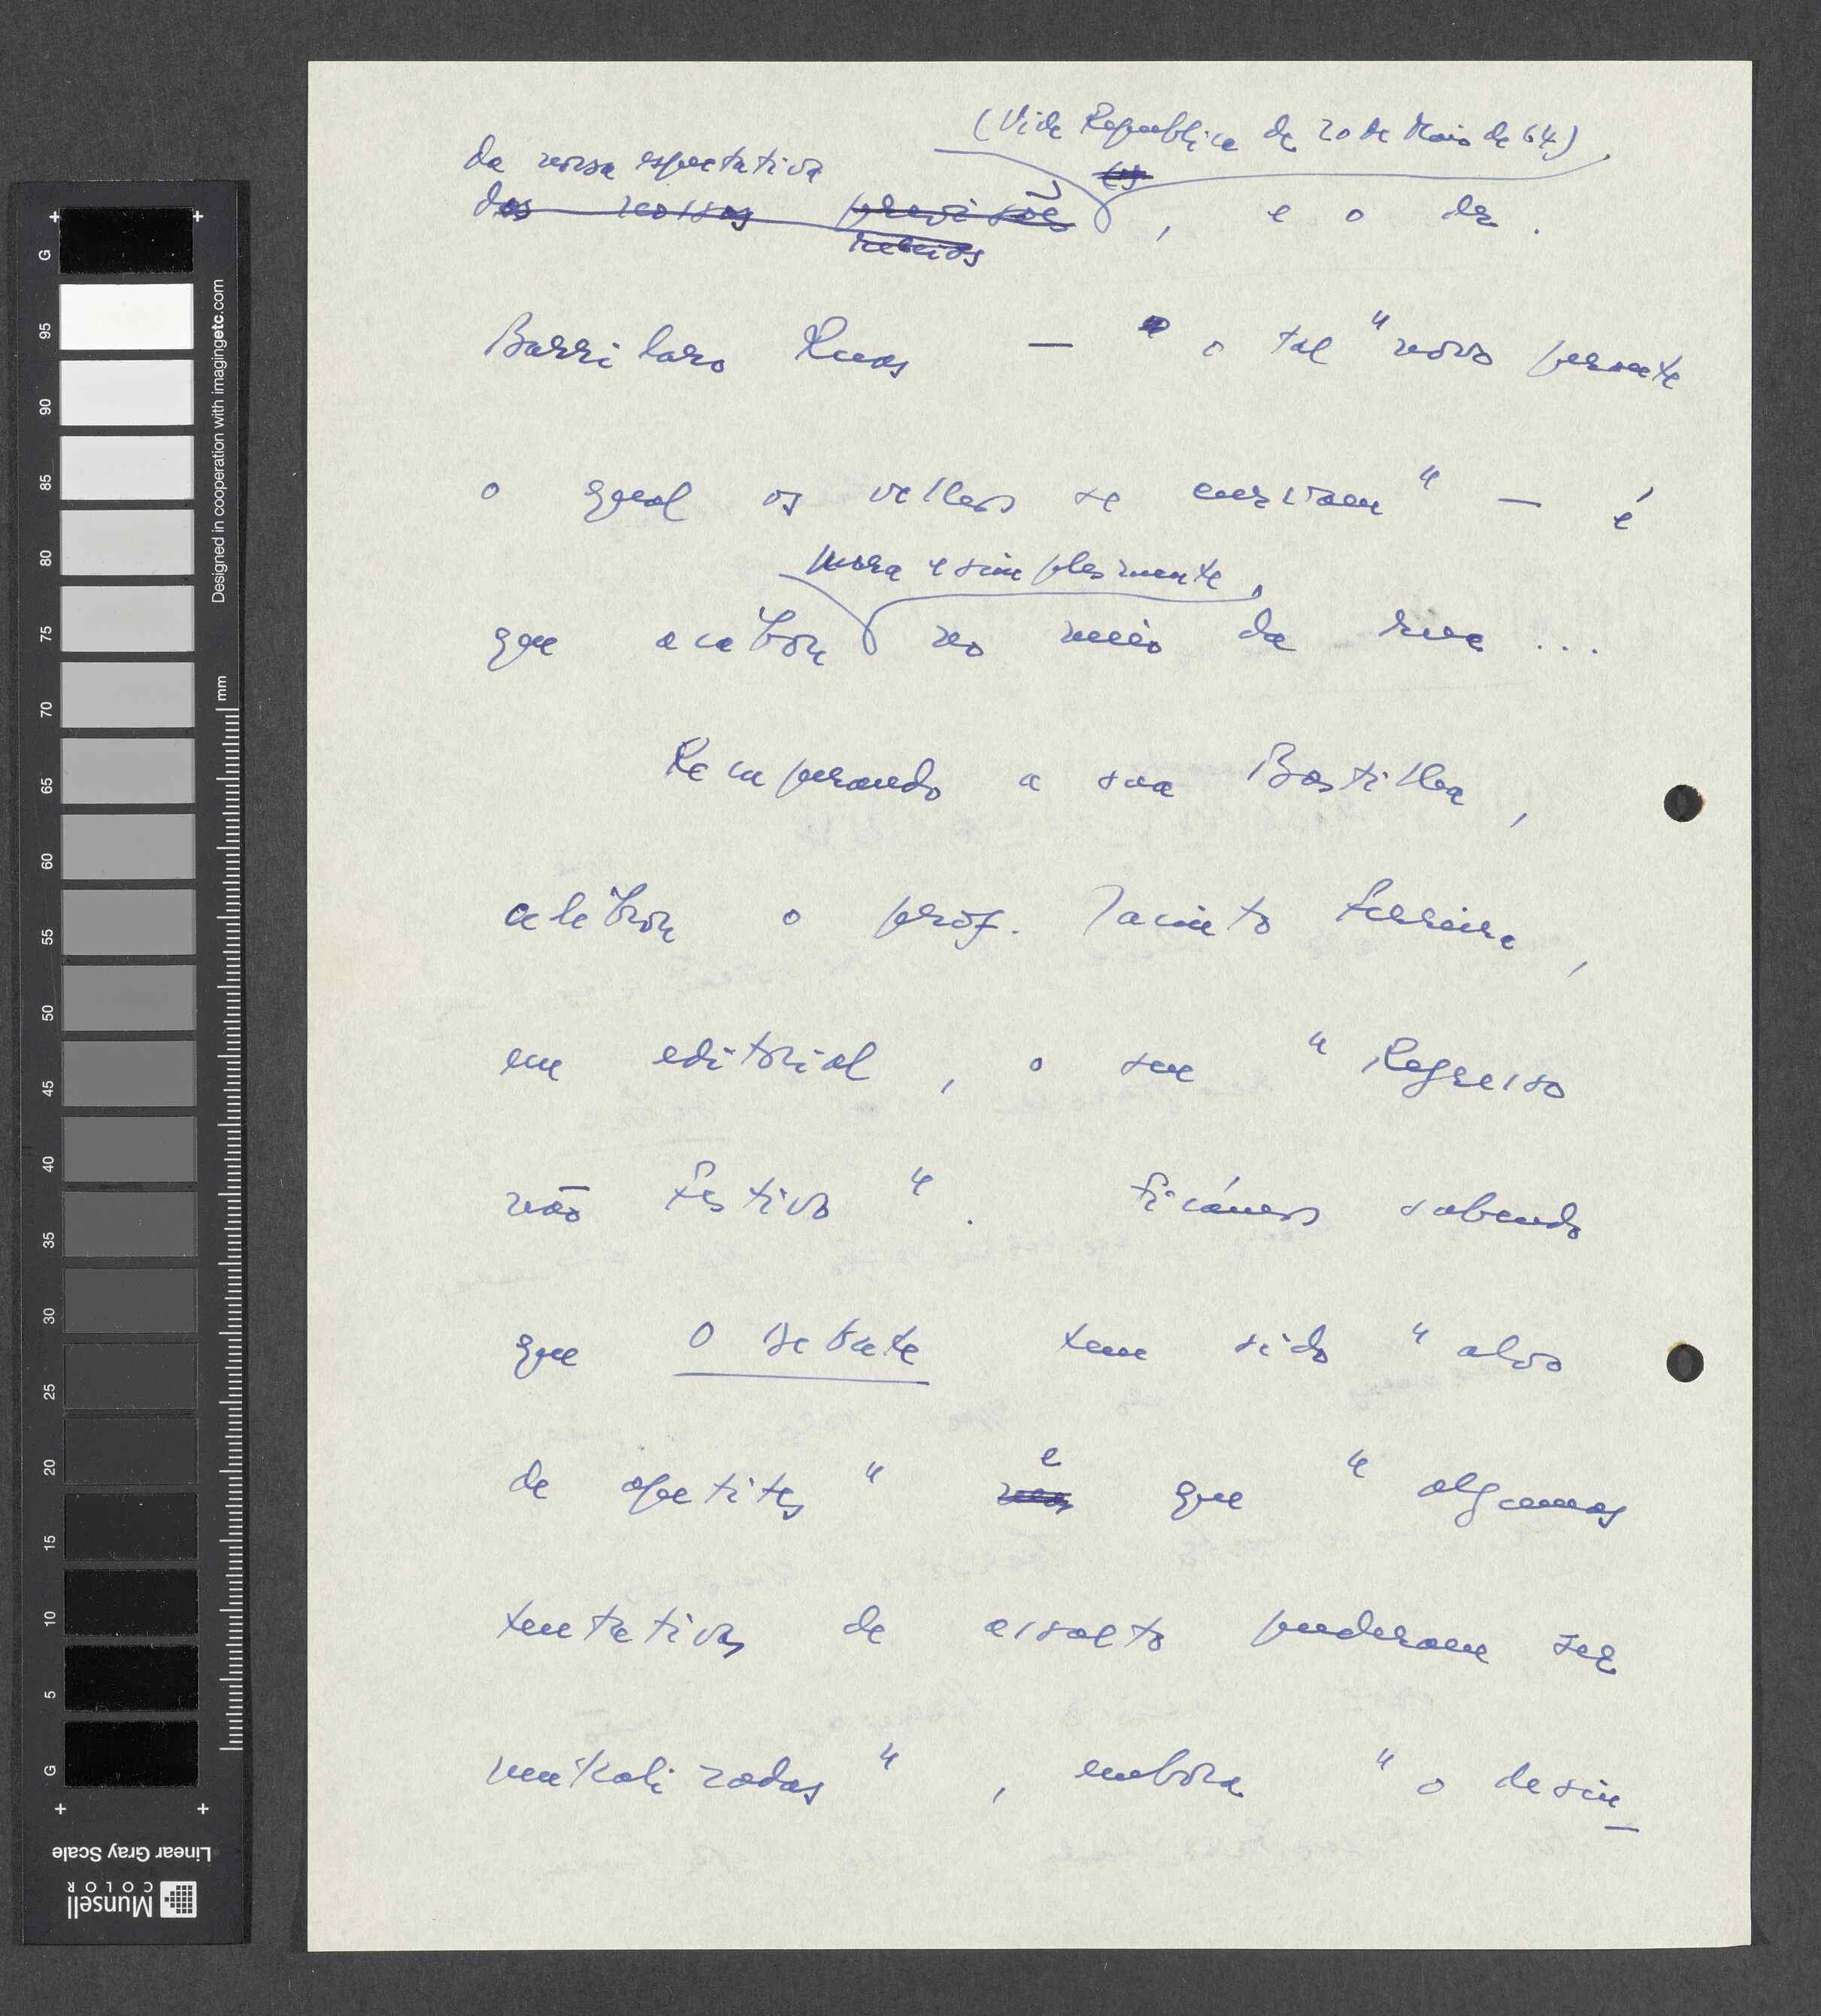 (Vide Republica de 20 de Maio de 64)
da nossa espectativa
dos nossos previsões, e o dr.
receios
Barrilaro Ruas — o tal "novo perante
o qual os velhos se curvam" — é
pura e simplesmente,
que acabou no meio da rua ...
Recuperando a sua Bastilha,
celebrou o prof. Jacinto Ferreira,
em editorial, o seu "Regresso
não festivo". Ficámos sabendo
que O Debate tem sido "alvo
e
de apetites" mas que "algumas
tentativas de assalto puderam ser
neutralizadas", embora "o desin_
G
95
90
85
80
75
70
65
60
55
50
45
40
35
30
25
20
15
10
5
G
mm
Designed in cooperation with imagingetc.com
Linear Gray Scale
Munsell
COLOR